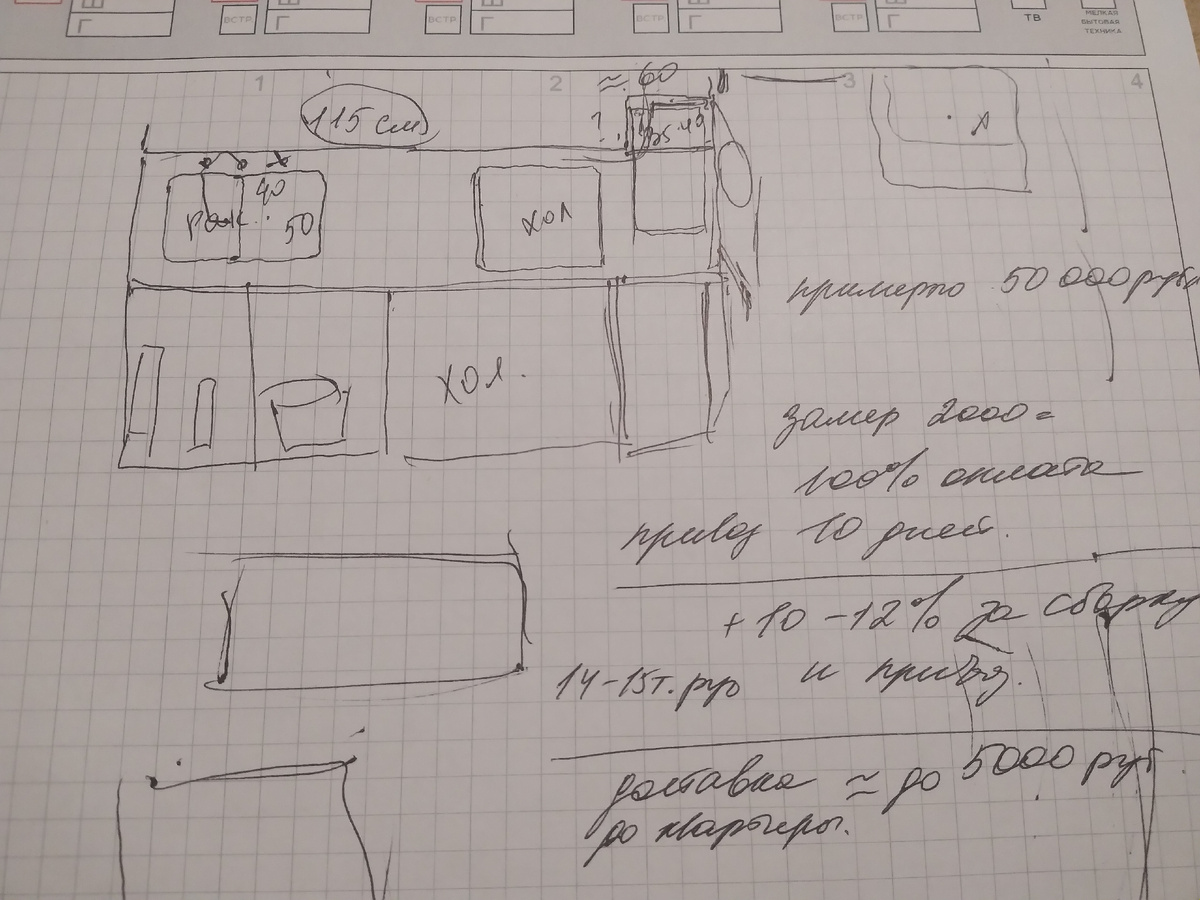 Г
ВСТР.
Г
ВСТР.
Г
ВСТР.
Г
ВСТР.
Г
ТВ
МЕЛКАЯ
БЫТОВАЯ
ТЕХНИКА
1
2
3
4
≈ 60
115 см
?
40
50
хол
примерно 50 000 руб
хол.
замер 2000=
100% оплата
привоз 10 дней.
+10-12% за сборку
14-15т.руб и привоз.
доставка ≈ до 5000 руб
до квартиры.